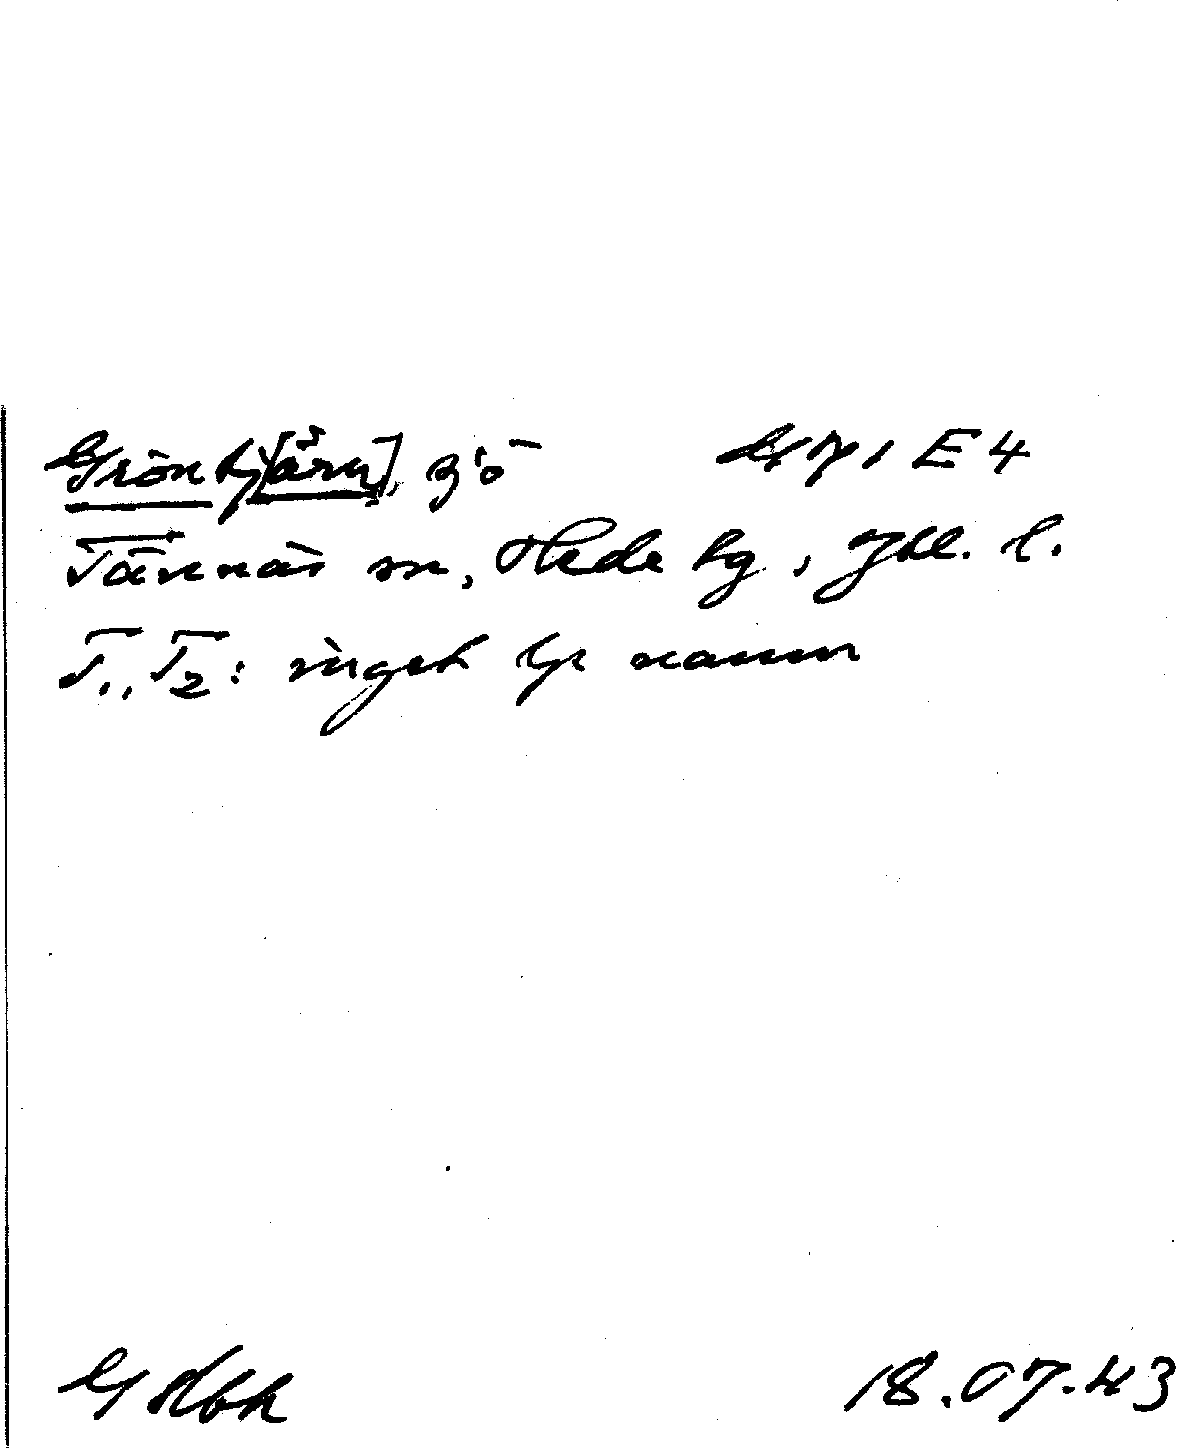 Gröntj[ärn], sjö G71 E4
Tännäs sn, Hede tg, Jtl. l.
T1, T2: inget lp namn
GHbk 18.07.43